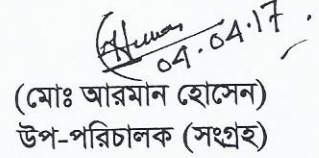 04.04.17
(মোঃ আরমান হোসেন)
উপ-পরিচালক (সংগ্রহ)